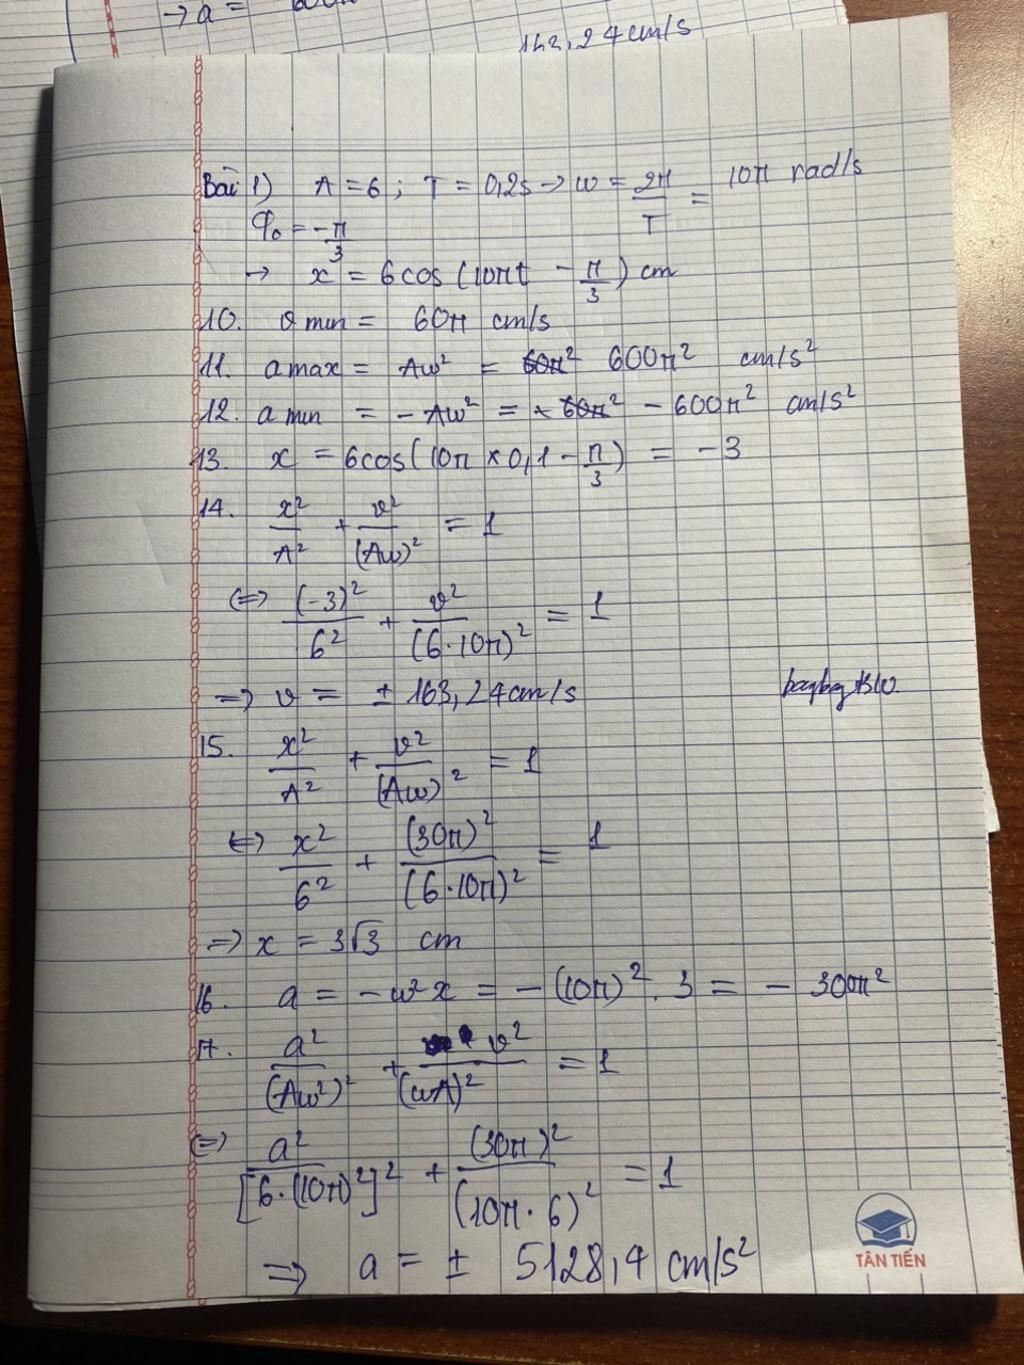 → a =
162,24cm/s
Bài 1) A = 6 ; T = 0,2s → ω = 2π/T = 10π rad/s
φ₀ = -π/3
→ x = 6cos(10πt - π/3) cm
10. v min = 60π cm/s
11. a max = Aω² = 60π² 600π² cm/s²
12. a min = - Aω² = - 60π² - 600π² cm/s²
13. x = 6cos(10π × 0,1 - π/3) = -3
14. x²/A² + v²/(Aω)² = 1
⇔ (-3)²/6² + v²/(6·10π)² = 1
⇒ v = ± 163,24cm/s
15. x²/A² + v²/(Aω)² = 1
⇔ x²/6² + (30π)²/(6·10π)² = 1
⇒ x = 3√3 cm
16. a = -ω²x = -(10π)² . 3 = - 300π²
17. a²/(Aω²)² + v²/(ωA)² = 1
⇔ a²/[6·(10π)²]² + (30π)²/(10π·6)² = 1
⇒ a = ± 5128,4 cm/s²
TÂN TIẾN